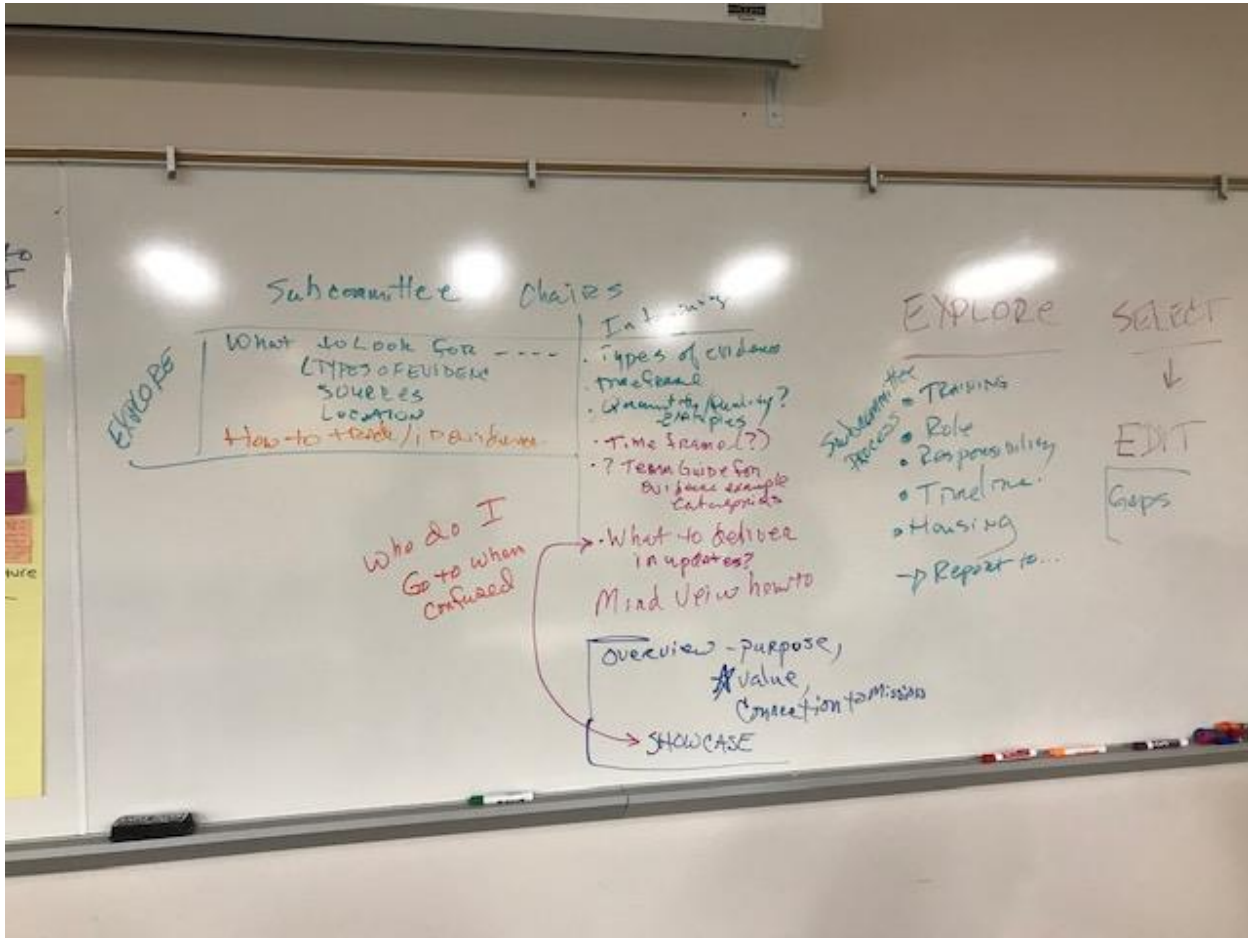 to
I
ture
Subcommittee Chairs
EXPLORE
What to Look for ----
(TYPES OF EVIDENC
SOURCES
LOCATION
How to
In
• Types of evidence
• timeframe
• Quantity/Quality?
examples
• Time frame (?)
• ? Team Guide for
evidence example
categories
• What to deliver
in updates?
Mind Veiw how to
Who do I
Go to when
confused
Overview - purpose,
value,
Connection to Mission
SHOWCASE
EXPLORE
Subcommittee
Process
• TRAINING
• Role
• Responsibility
• Timeline.
• Housing
→ Report to...
SELECT
↓
EDIT
Gaps